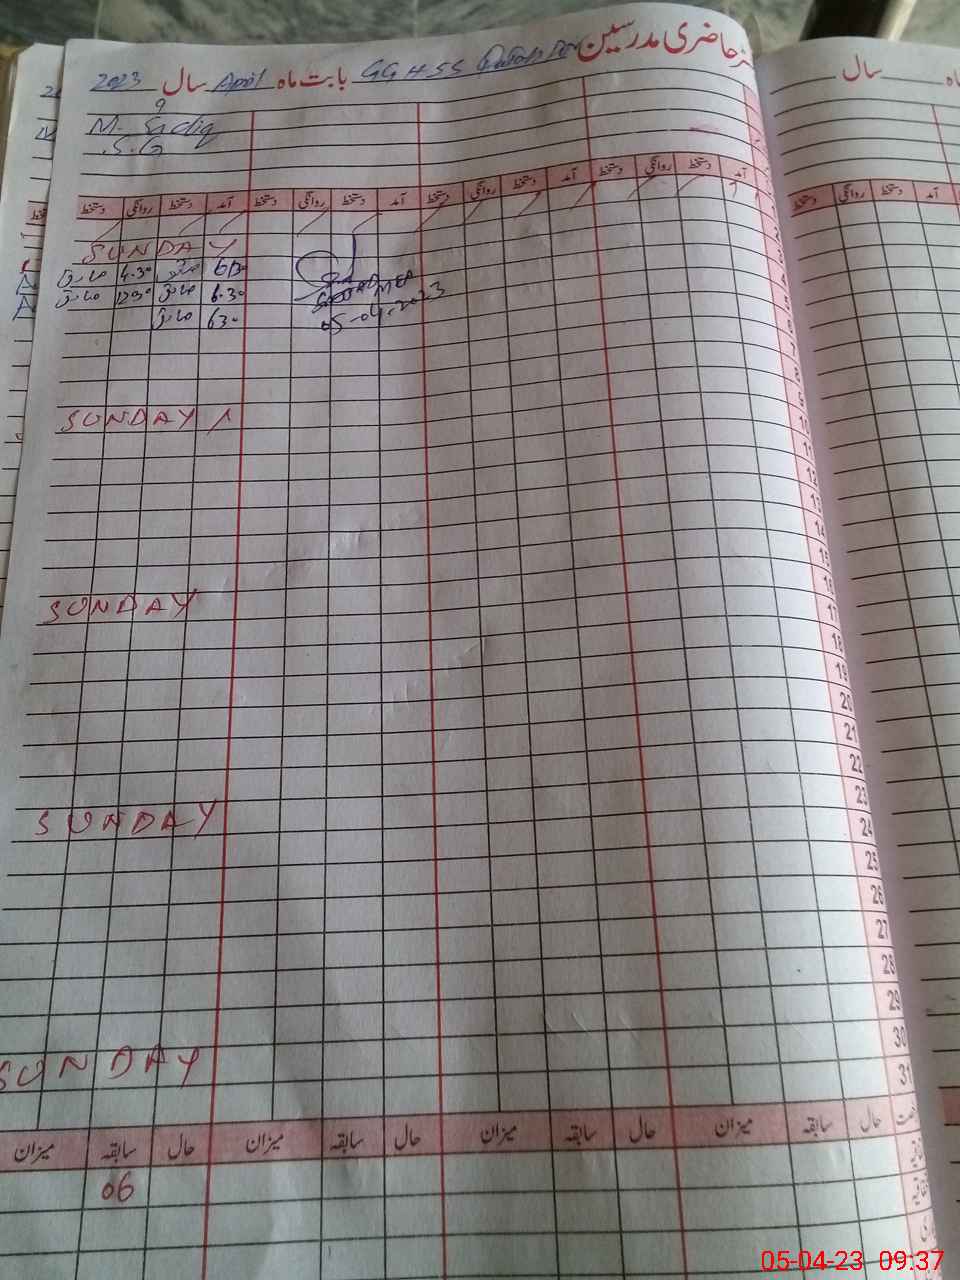 رجسٹر حاضری مدرسین GGHSS بابت ماہ April سال 2023
ماہ سال
9
M. Sadiq
S.G
آمد دستخط روانگی دستخط آمد دستخط روانگی دستخط آمد دستخط روانگی دستخط آمد دستخط روانگی دستخط
آمد دستخط روانگی دستخط
1
2 SUNDAY
3 630 صادق 4.30 صادق
4 6.30 صادق 1230 صادق
5 630 صادق
MEA
05-04-2023
6
7
8
9 SUNDAY
10
11
12
13
14
15
16 SUNDAY
17
18
19
20
21
22
23 SUNDAY
24
25
26
27
28
29
30 SUNDAY
31
حال سابقہ میزان حال سابقہ میزان حال سابقہ میزان حال سابقہ میزان
06
05-04-23 09:37